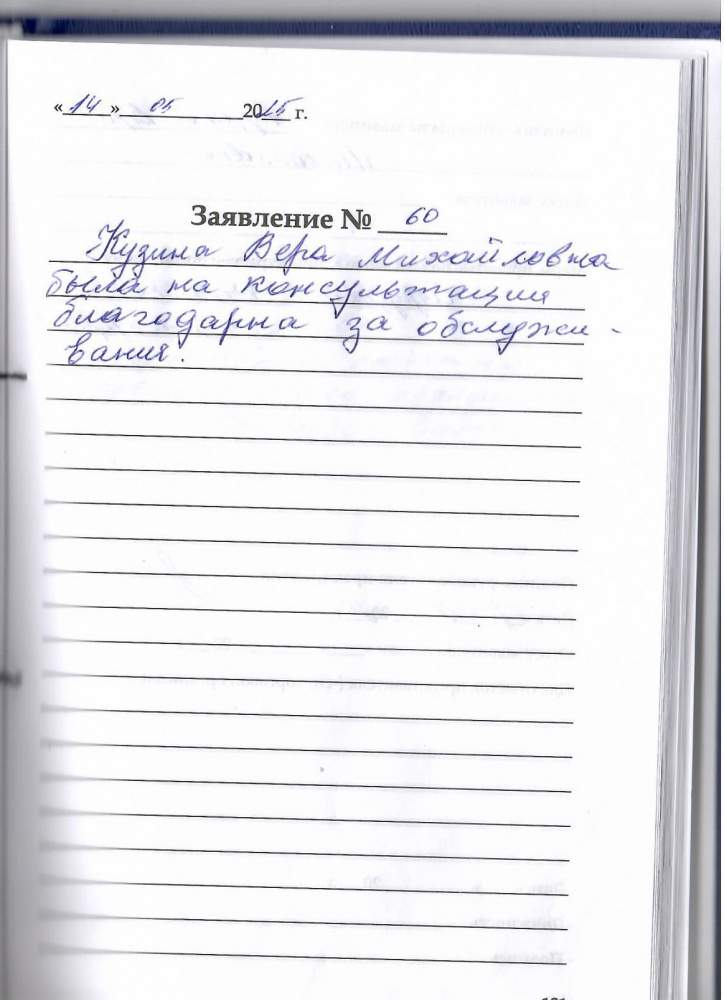 «14» 05 2015 г.
Заявление № 60
Кузина Вера Михайловна
была на консультации
благодарна за обслужи-
вания.